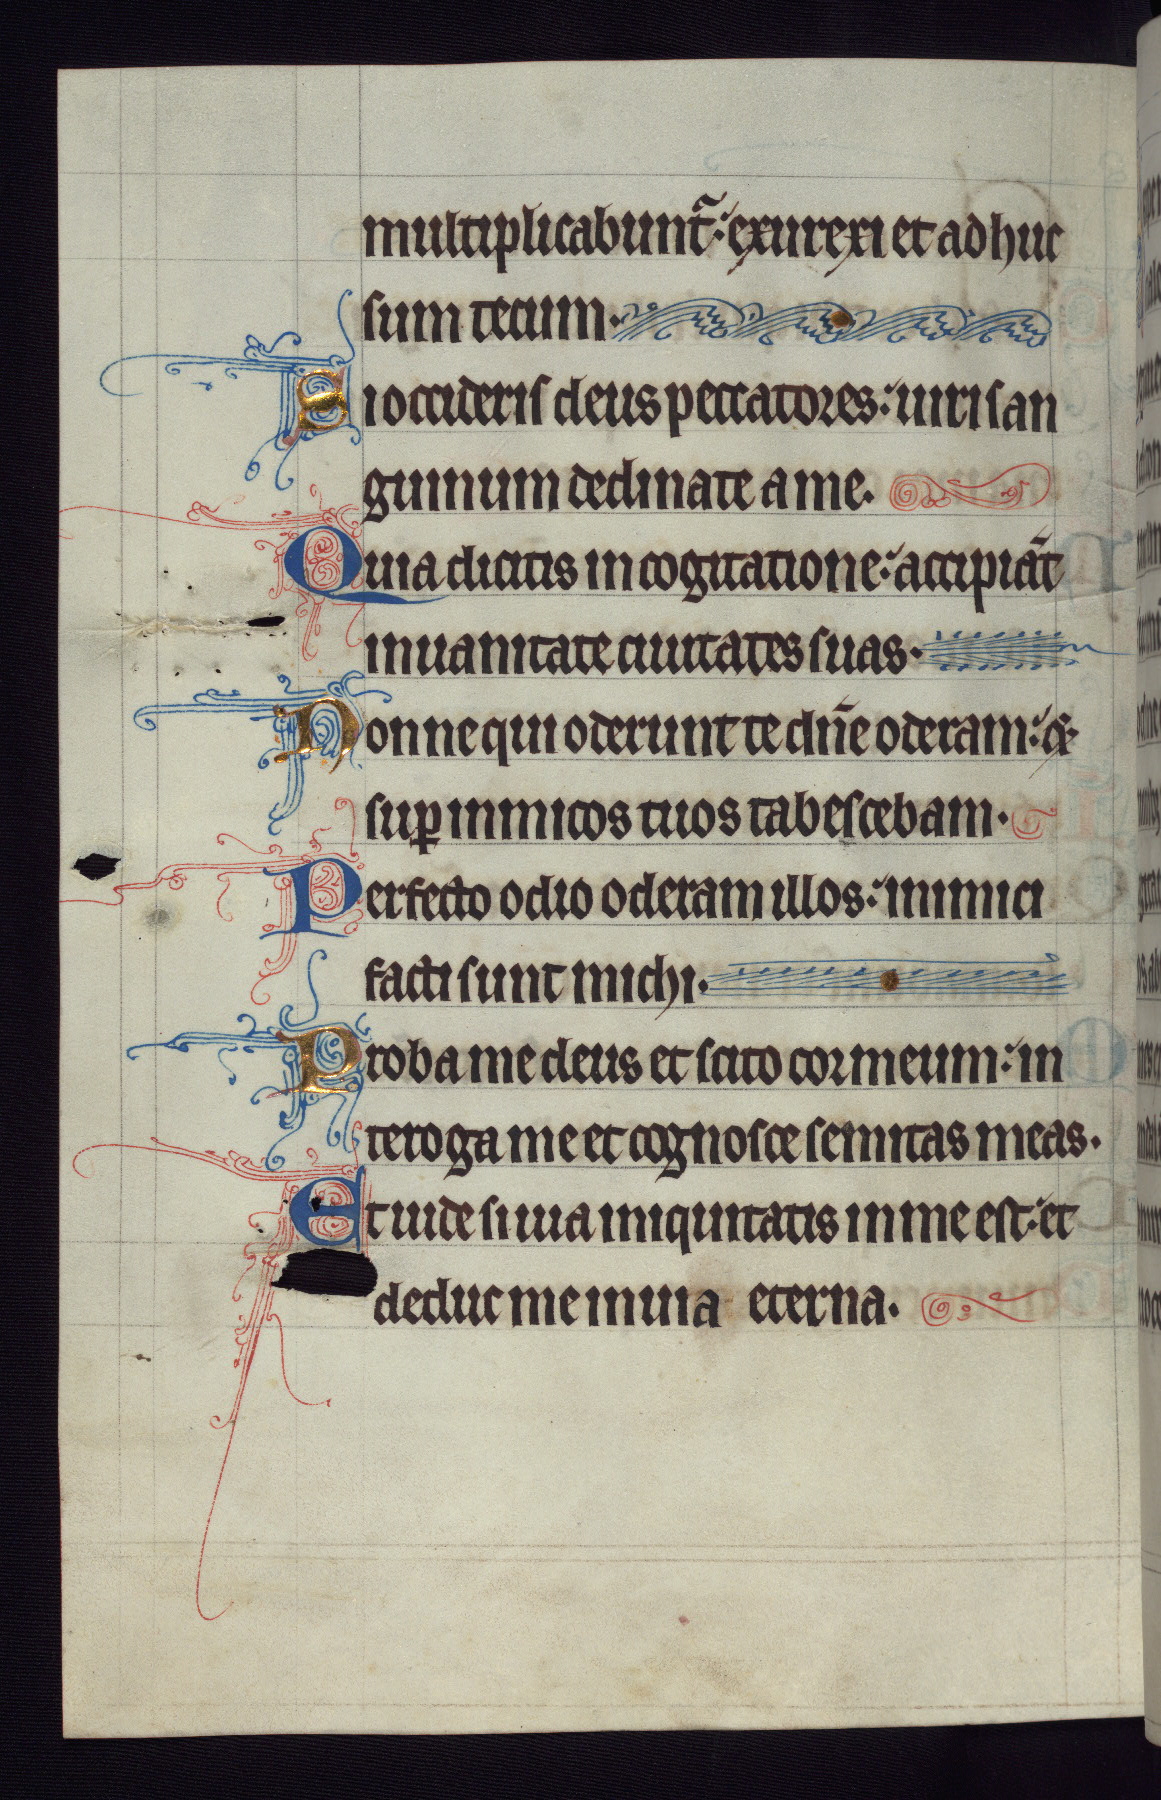 multiplicabuntᷓ: exurexi et adhuc
sum tecum.
Si occideris deus peccatores: uiri san
guinum declinate a me.
Quia dicitis in cogitatione: accipiāt
in uanitate ciuitates suas.
Nonne qui oderunt te dn̄e oderam: &
suꝑ inimicos tuos tabescebam.
Perfecto odio oderam illos: inimici
facti sunt michi.
Proba me deus et scito cor meum: in
teroga me et cognosce semitas meas.
Et uide si uia iniquitatis in me est: et
deduc me in uia eterna.